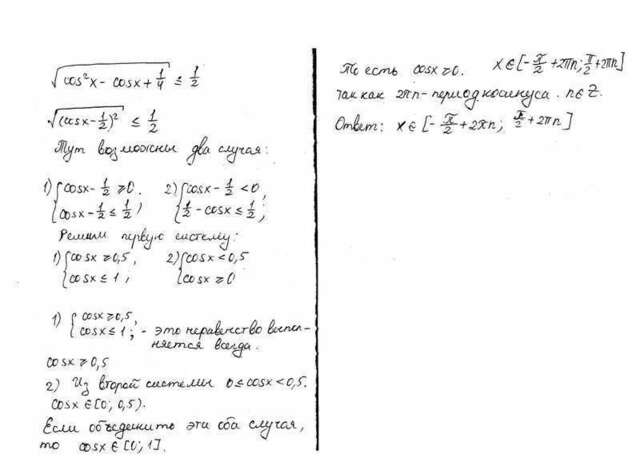 √(cos²x - cosx + 1/4) ≤ 1/2
√((cosx - 1/2)²) ≤ 1/2
Тут возможны два случая:
1) { cosx - 1/2 ≥ 0, 2) { cosx - 1/2 < 0,
{ cosx - 1/2 ≤ 1/2; { 1/2 - cosx ≤ 1/2;
Решим первую систему:
1) { cosx ≥ 0,5, 2) { cosx < 0,5
{ cosx ≤ 1; { cosx ≥ 0
1) { cosx ≥ 0,5,
{ cosx ≤ 1; - это неравенство выпол-
няется всегда.
cosx ≥ 0,5
2) Из второй системы 0 ≤ cosx < 0,5.
cosx ∈ [0; 0,5).
Если объеденить эти оба случая,
то cosx ∈ [0; 1].
То есть cosx ≥ 0. x ∈ [-π/2 + 2πn; π/2 + 2πn]
так как 2πn - период косинуса. n ∈ Z.
Ответ: x ∈ [-π/2 + 2πn; π/2 + 2πn]